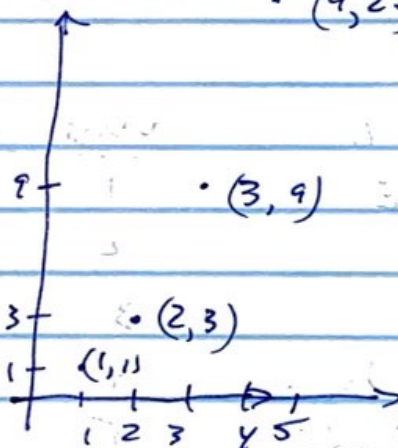 9 (3, 9)
3 (2, 3)
1 (1, 1)
1 2 3 4 5